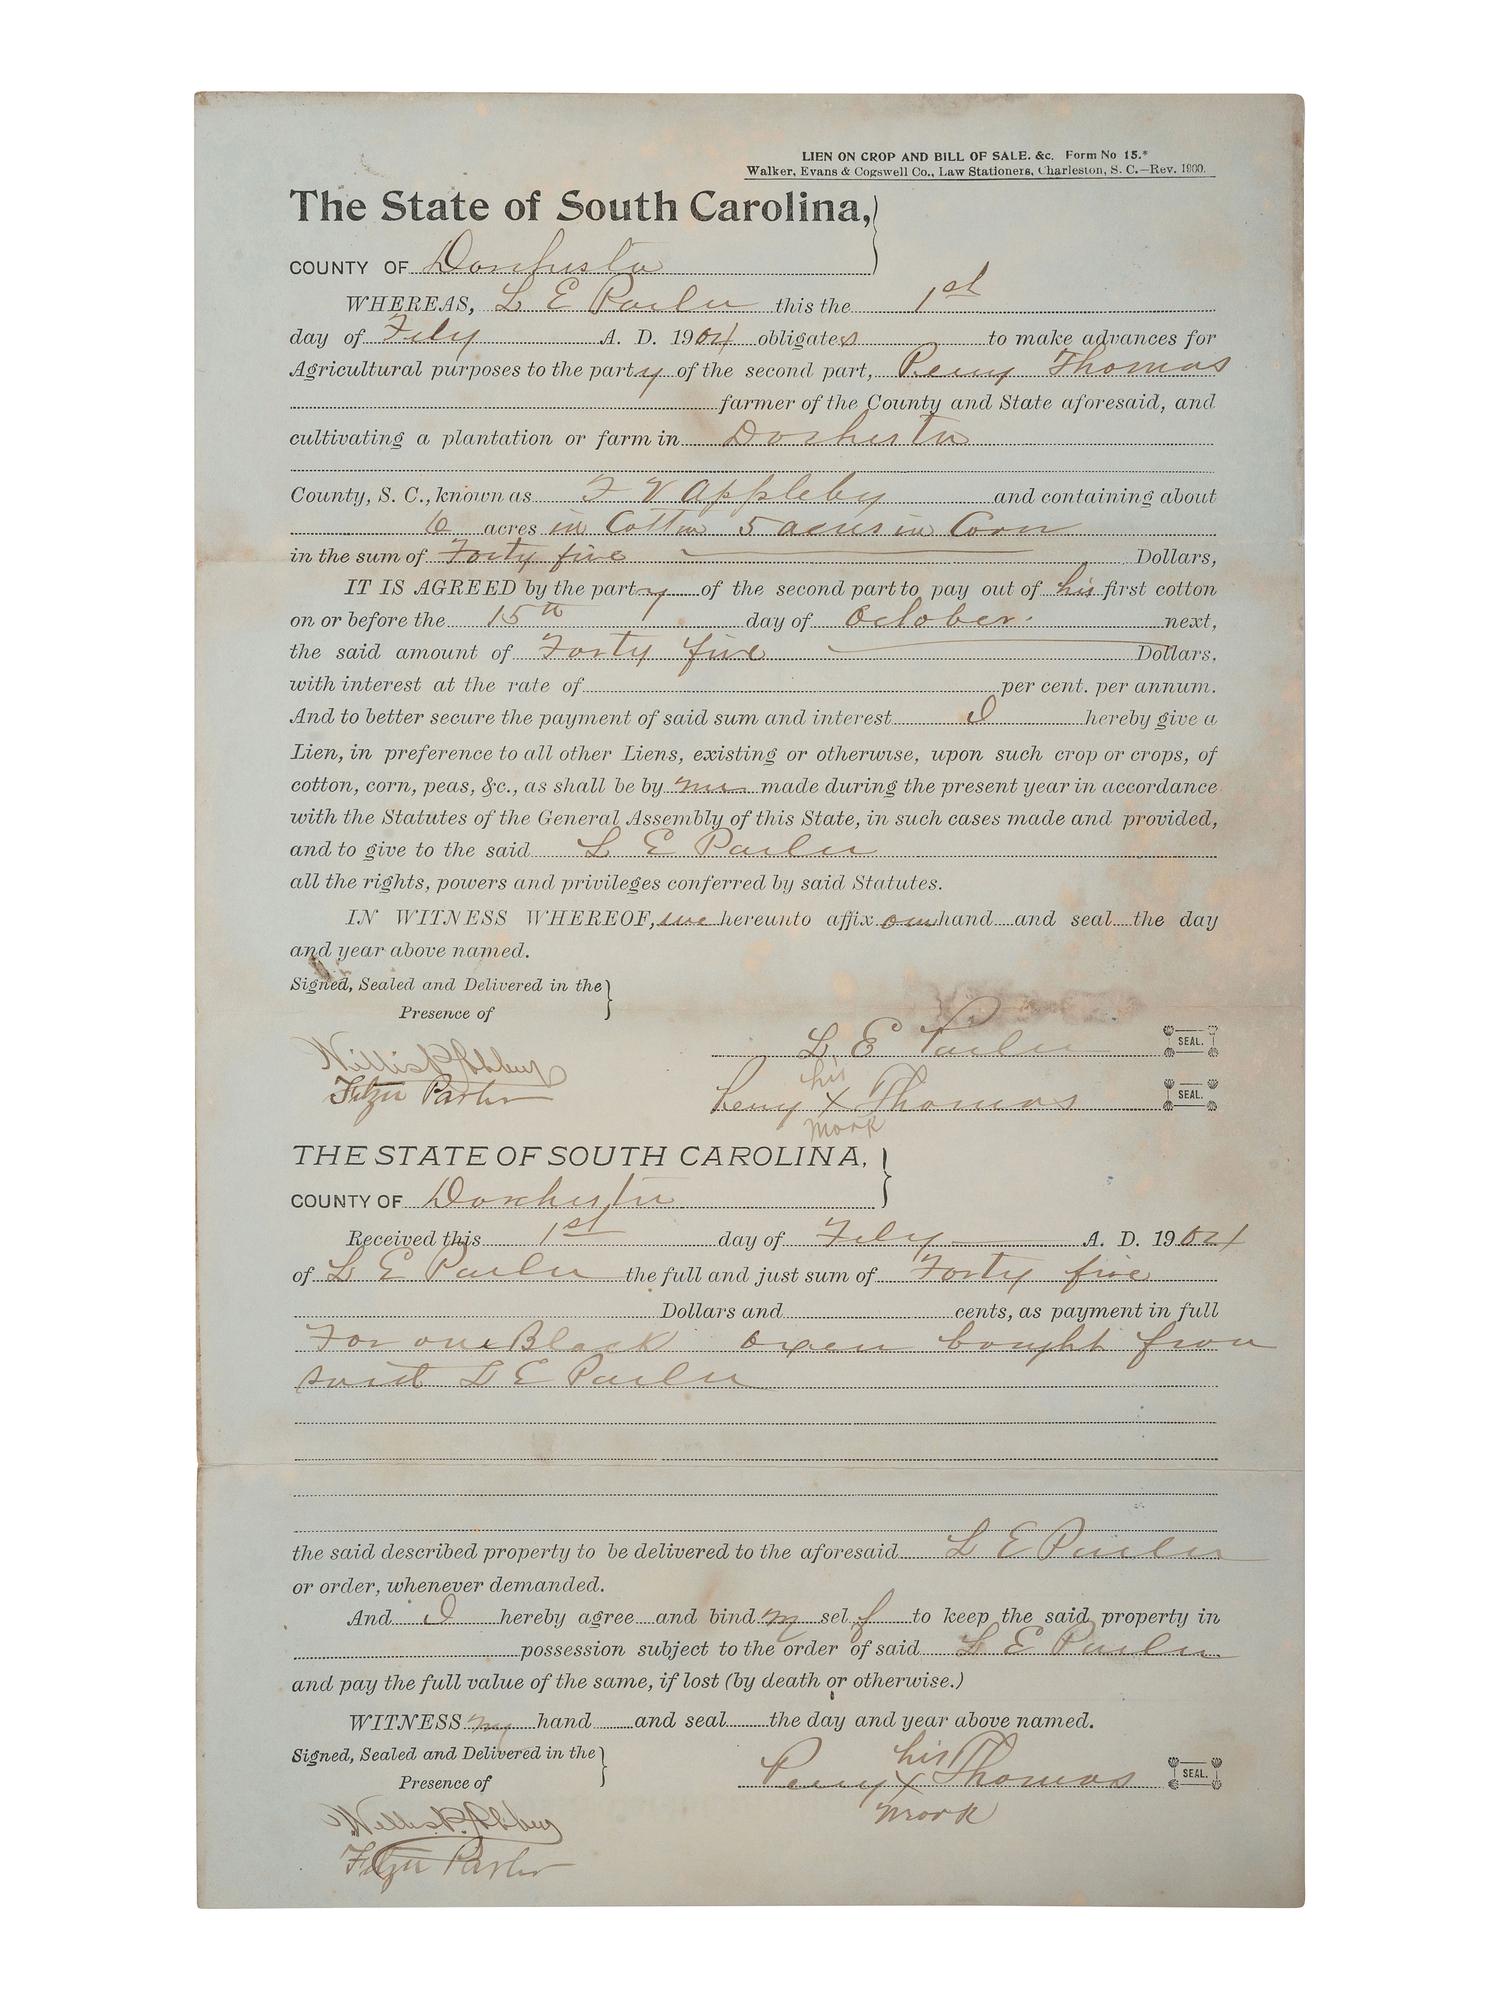 LIEN ON CROP AND BILL OF SALE. &c. Form No 15.*
Walker, Evans & Cogswell Co., Law Stationers, Charleston, S. C.—Rev. 1900.
The State of South Carolina,
COUNTY OF Dorchester
WHEREAS, L E Parler this the 1st
day of Feby A. D. 1904 obligates to make advances for
Agricultural purposes to the party of the second part, Perry Thomas
farmer of the County and State aforesaid, and
cultivating a plantation or farm in Dorchester
County, S. C., known as Appleby and containing about
acres in Cotton 5 acres in Corn
in the sum of Forty five Dollars,
IT IS AGREED by the party of the second part to pay out of his first cotton
on or before the 15th day of October next,
the said amount of Forty five Dollars,
with interest at the rate of per cent. per annum.
And to better secure the payment of said sum and interest I hereby give a
Lien, in preference to all other Liens, existing or otherwise, upon such crop or crops, of
cotton, corn, peas, &c., as shall be by me made during the present year in accordance
with the Statutes of the General Assembly of this State, in such cases made and provided,
and to give to the said L E Parler
all the rights, powers and privileges conferred by said Statutes.
IN WITNESS WHEREOF, we hereunto affix our hand and seal the day
and year above named.
Signed, Sealed and Delivered in the
Presence of
L E Parler SEAL.
his
Perry X Thomas SEAL.
Parler
mark
THE STATE OF SOUTH CAROLINA,
COUNTY OF Dorchester
Received this 1st day of Feby A. D. 1904
of L E Parler the full and just sum of Forty five
Dollars and cents, as payment in full
For one Black oxen bought from
said L E Parler
the said described property to be delivered to the aforesaid L E Parler
or order, whenever demanded.
And I hereby agree and bind my self to keep the said property in
possession subject to the order of said L E Parler
and pay the full value of the same, if lost (by death or otherwise.)
WITNESS my hand and seal the day and year above named.
Signed, Sealed and Delivered in the
Presence of
his
Perry X Thomas SEAL.
mark
Parler